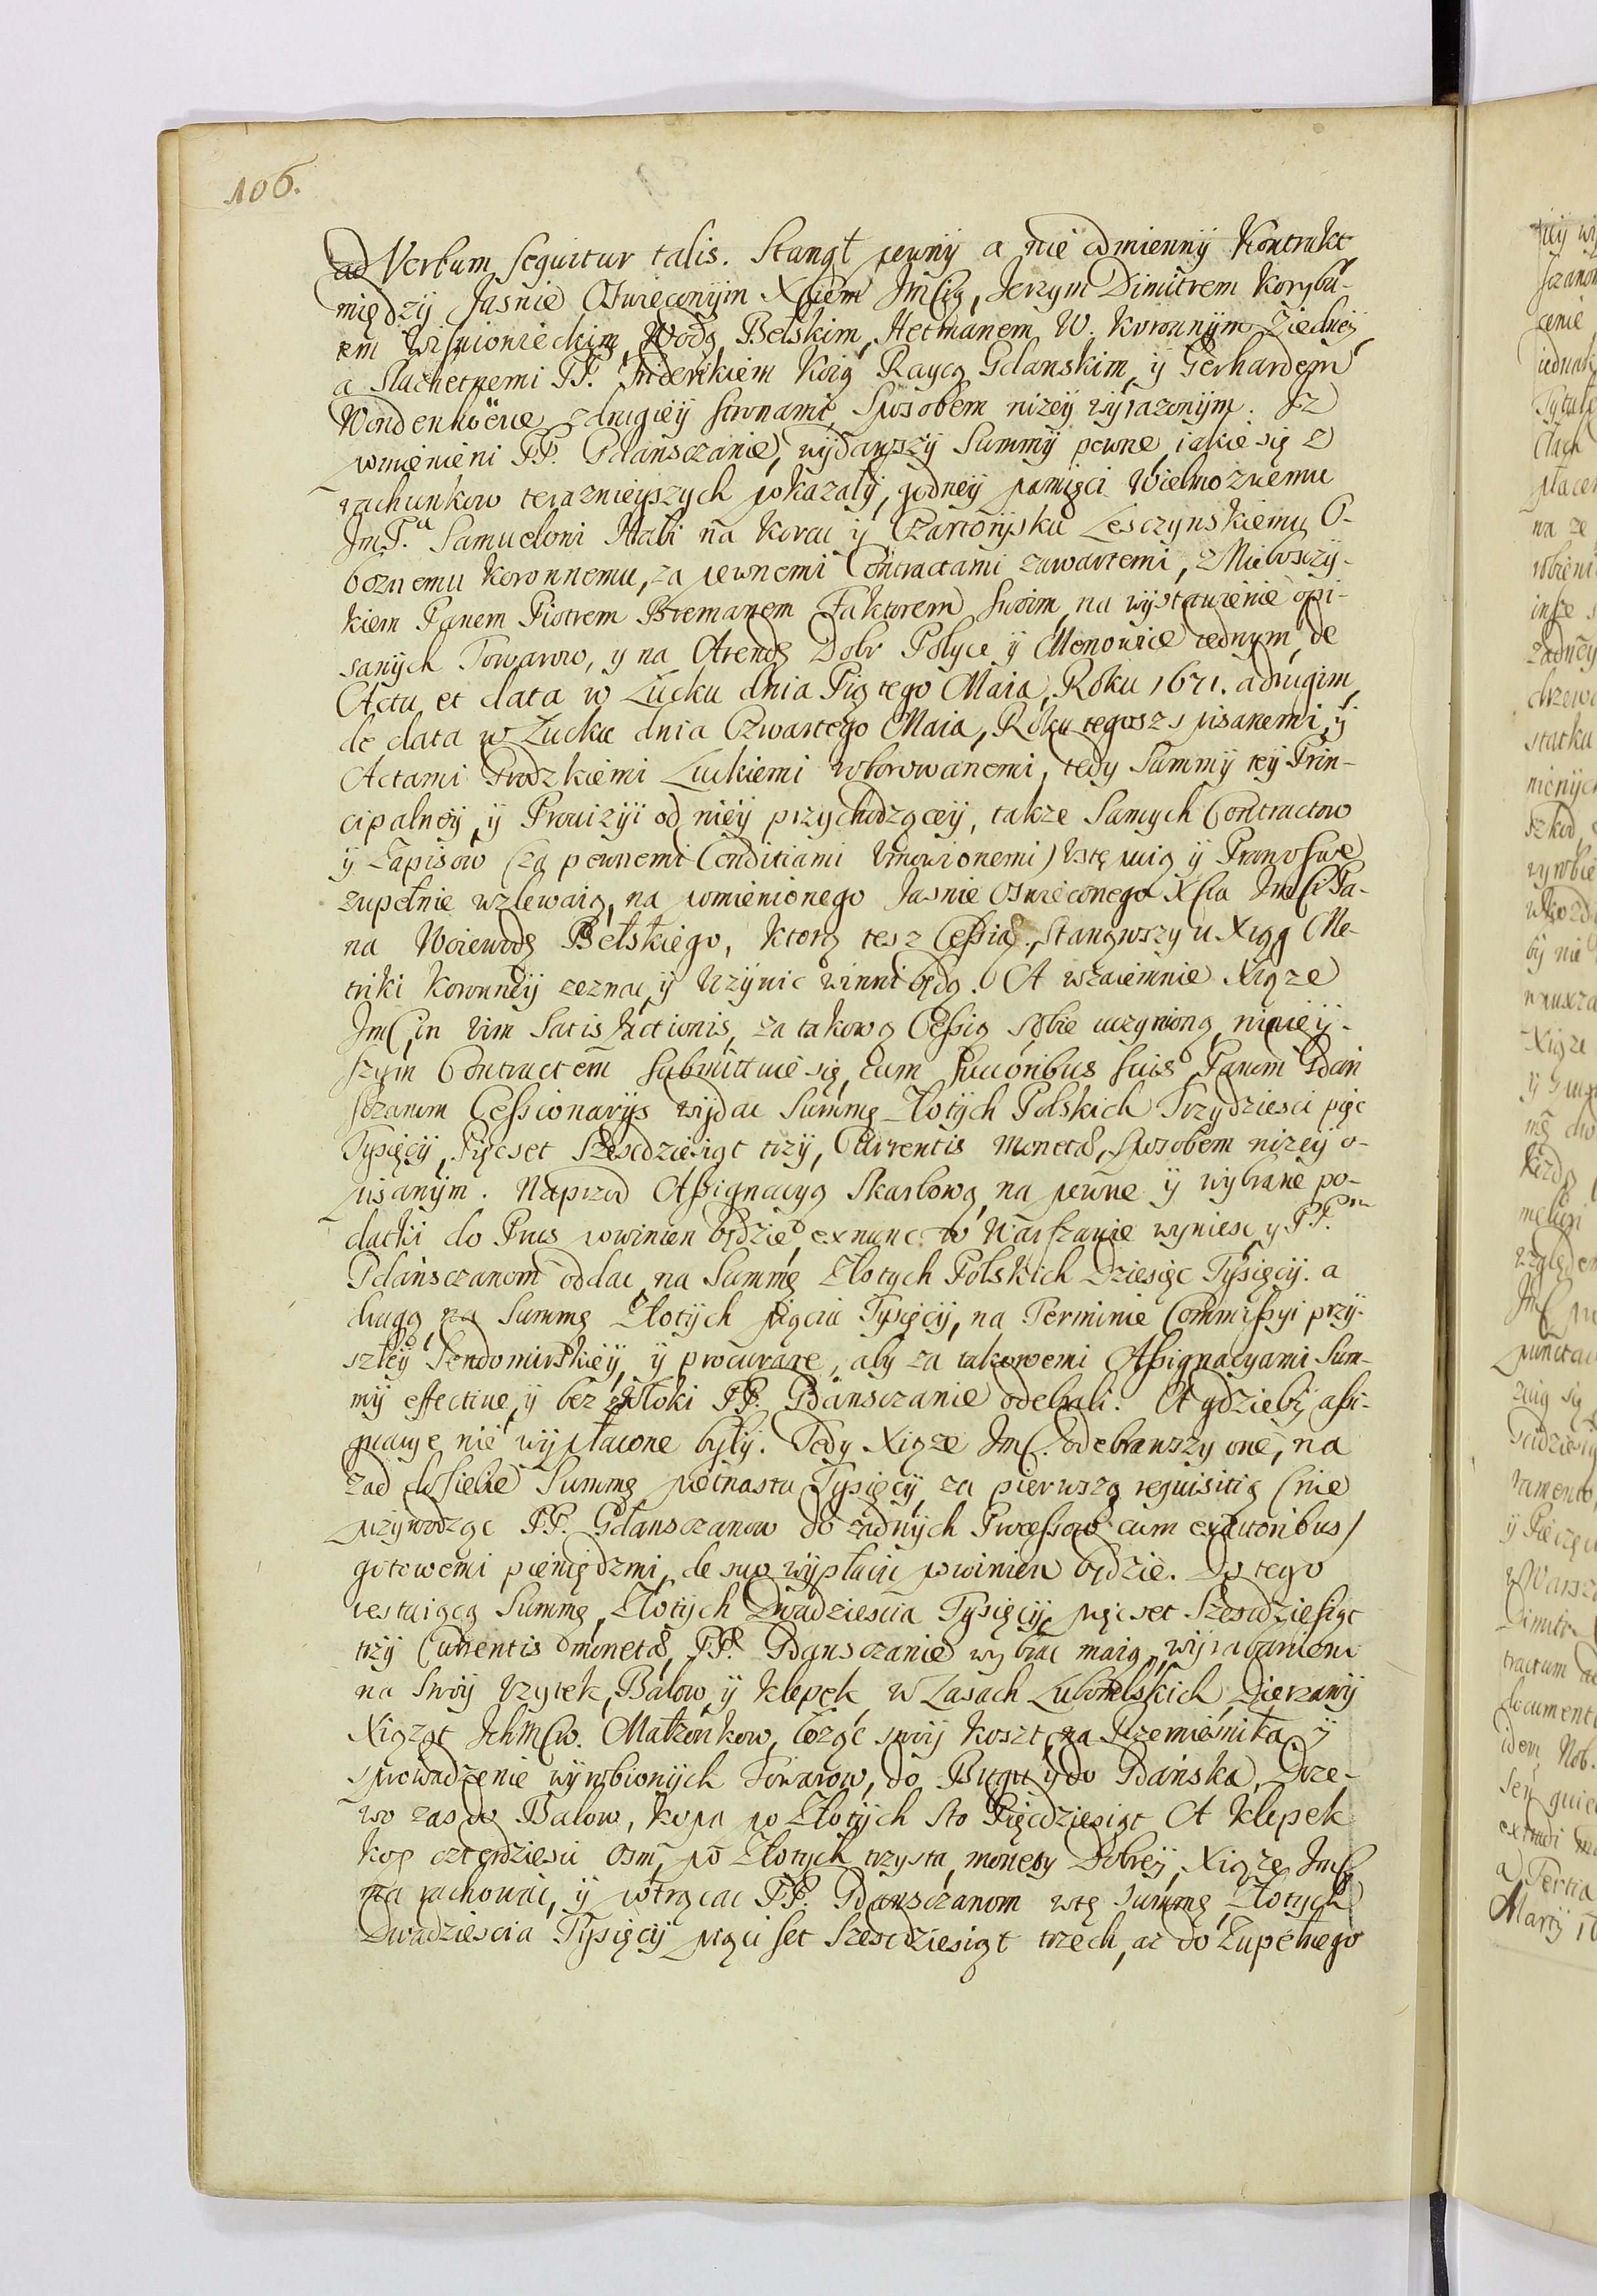 106.
ad Verbum sequitur talis. Stanął pewnÿ a nie odmiennÿ Kontrakt
międzÿ Jasnie Oswieconÿm Xciem JmCią, Jerzym Dimitrem Korybu-
em Wisnionieckim, Wodą Bełskim, Hetmanem W. Koronnÿm ziednéÿ
a Slachetnemi PP. Friderikiem Raycą Gdanskim, ÿ Gerhardem
zdrugieÿ stronami, Sposobem nizeÿ wÿrazonÿm. Jz
pomienieni PP. Gdansczanie, wÿdawszÿ Summÿ pewne, iakie się z
rachunkow teraznieÿszych pokazałÿ, godneÿ pamięci Wielmoznemu
JmP.u Samuelowi Hrabi na Korcu ÿ Czartorÿsku Lesczynskiemu O-
boznemu Koronnemu, za pewnemi Contractami zawartemi, z Niebosczÿ-
kiem Panem Piotrem Bremanem Faktorem Swoim, na wÿstawienie opi-
sanÿch Towarow, y na Arendę Dobr Polyce ÿ Monowice iednym, de
Actu et data w Łucku dnia Piątego Maia, Roku 1671. adrugim
de data w Łucku dnia Czwartego Maia, Roku tegosz spisanemi, ÿ
Actami Grodzkiemi Łuckiemi roborowanemi, tedy Summÿ teÿ Prin-
cipalneÿ, ÿ Prowizÿi od nieÿ przychodząceÿ, takze Samych Contractow
ÿ Zapisow (za pewnemi Conditiami Vmowionemi) Vstępuią ÿ Prawo swe
zupełnie wzlewaią, na pomienionego Jasnie Oswieconego XCia JmCi Pa-
na Woiewodę Bełskiego, ktorą tesz Cessią, Stanąwszy u Xiąg Me-
triki Koronneÿ zeznac, ÿ Vczÿnic winni będą. A wzaiemnie Xiąze
JmC, in vim Satisfactionis, za takową Cessią sobie uczynioną, ninieÿ-
szym Contractem submittuie się, cum Succoribus suis Panom Gdan
sczanom Cessionarÿs wÿdac Summę Złotÿch Polskich Trzydziesci pięc
Tysięcÿ, Pięcset Szescdziesiąt trzÿ, Currentis monetæ, Sposobem nizeÿ o-
pisanÿm. Naprzod Assignacyą Skarbową, na pewne ÿ wybrane po-
datki do Prus powinien będzie, ex nunc w Warszawie wyniesc, y PP.
Gdansczanom oddac, na Summę Złotych Polskich Dziesięc Tysięcÿ. a
drugą na Summę Złotÿch pięciu Tysięcÿ, na Terminie Commissyi przÿ-
szłeÿ Sendomirskieÿ, ÿ procurare, aby za takowemi Assignacyami Sum-
mÿ effective, ÿ bez zwłoki PP. Gdansczanie odebrali. A gdziebÿ assi-
gnacye nie wÿpłacone byłÿ. Tedy Xiąze JmC. odebrawszy one, na
zad do siebie Summę piętnastu Tysięcÿ, za pierwszą requisitią (nie
przÿwodząc PP. Gdansczanow do zadnÿch Processow cum exactoribus)
gotowemi pieniędzmi, de suo wÿpłacic powinien będzie. Do tego
restaiącą Summę, Złotÿch Dwadziescia Tysięcÿ, pięcset Szescdziesiąt
trzÿ Currentis monetæ, PP. Gdansczanie wybrac maią, wÿrabaniem
na swoÿ Vzytek, Balow, ÿ Klepek w Lasach Lubomelskich, Dierzawÿ
Xiąząt JchMCiw. Małzonkow, łoząc swoÿ koszt, na Rzemiesnika, ÿ
sprowadzenie wÿrobionÿch Towarow, do Bugu ÿ do Gdanska, Drze-
wo zas do Balow, kopa po Złotÿch sto Pięcdziesiąt A klepek
kop czterdziesci osm, po Złotych trzysta, monety dobreÿ, Xiąze JmC
ma rachowac, ÿ potrącac PP. Gdansczanom wtę Summę, Złotych
Dwadziescia Tysięcÿ pięci set Szescdziesiąt trzech, az do Zupełnego